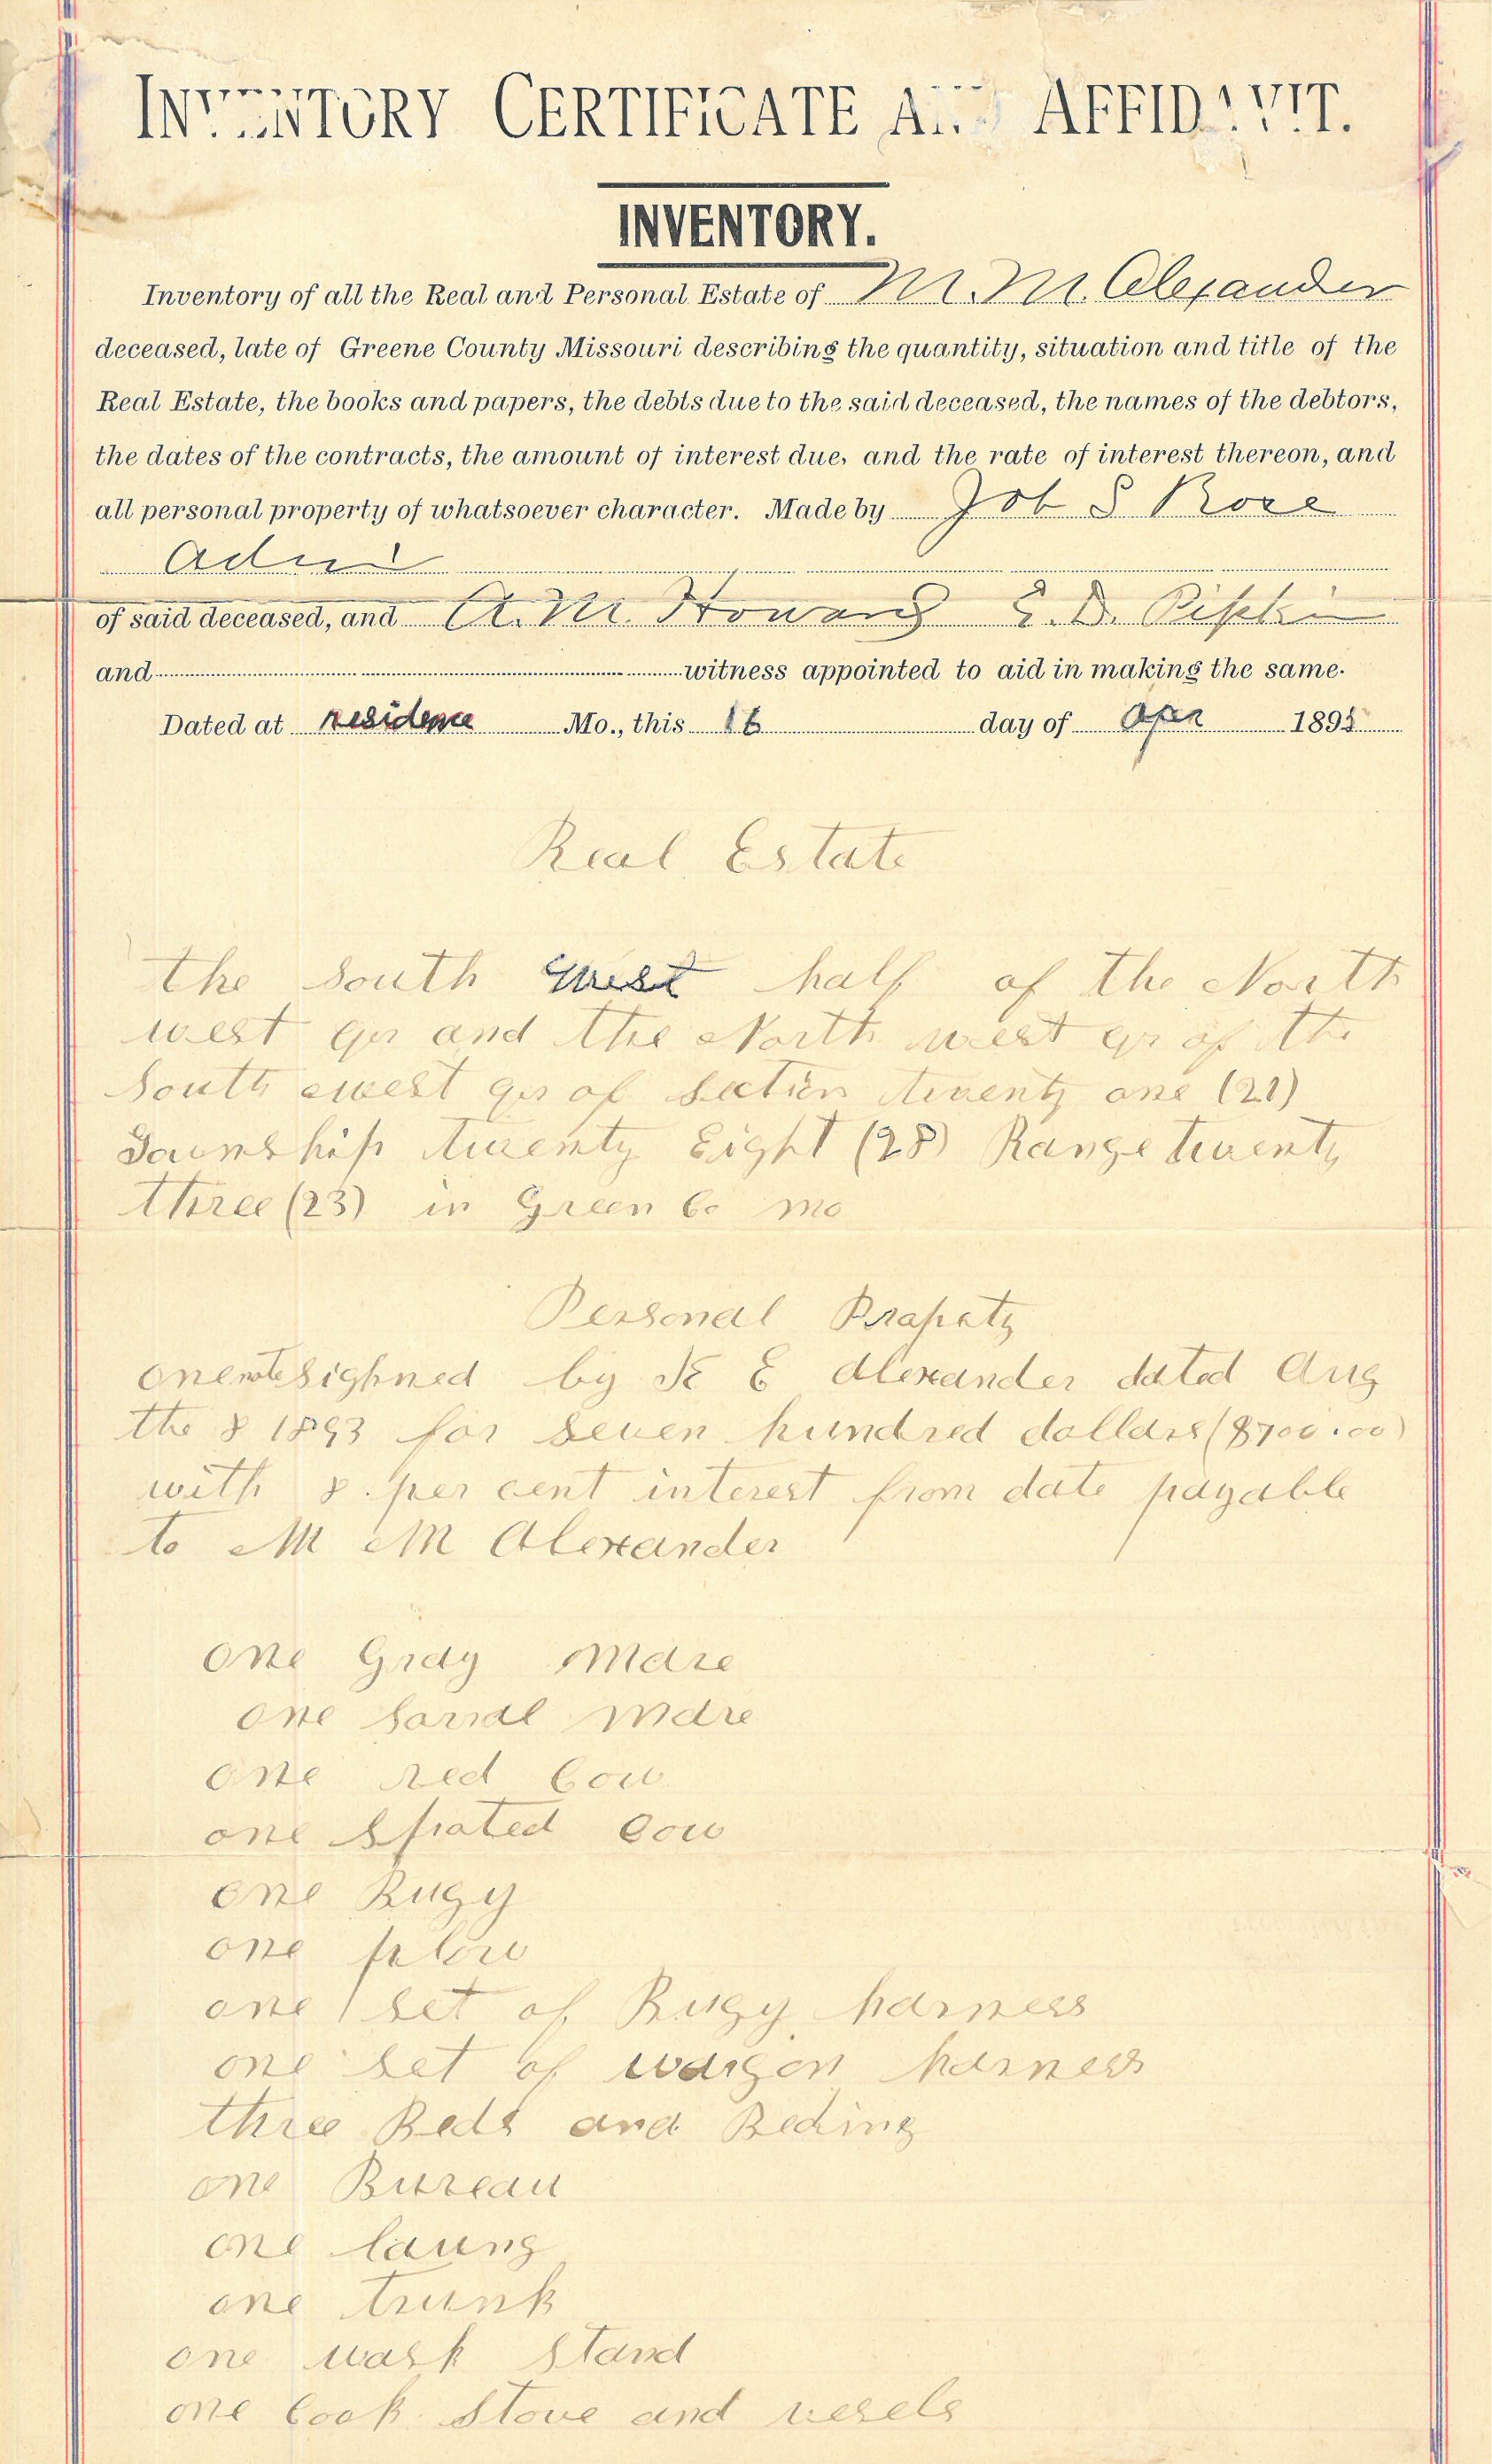 INVENTORY CERTIFICATE AND AFFIDAVIT.
INVENTORY.
Inventory of all the Real and Personal Estate of M. M. Alexander
deceased, late of Greene County Missouri describing the quantity, situation and title of the
Real Estate, the books and papers, the debts due to the said deceased, the names of the debtors,
the dates of the contracts, the amount of interest due, and the rate of interest thereon, and
all personal property of whatsoever character. Made by Job S Rose
Adm
of said deceased, and A. M. Howard E. D. Pipkin
and witness appointed to aid in making the same.
Dated at residence Mo., this 16 day of Apr 1895
Real Estate
the South West half of the North
west qr and the North west qr of the
South west qr of Section twenty one (21)
Township twenty Eight (28) Range twenty
three (23) in Green Co Mo
Personal Propety
one note sighned by E Alexander dated Aug
the 8 1893 for seven hundred dollars ($700.00)
with 8 per cent interest from date payable
to M M Alexander
one Gray Mare
one sorral Mare
one red Cow
one spoted Cow
one Bugy
one plow
one set of Bugy harness
one set of wagon harness
three Beds and Beding
one Bureau
one loung
one trunk
one wash stand
one Cook Stove and vesels